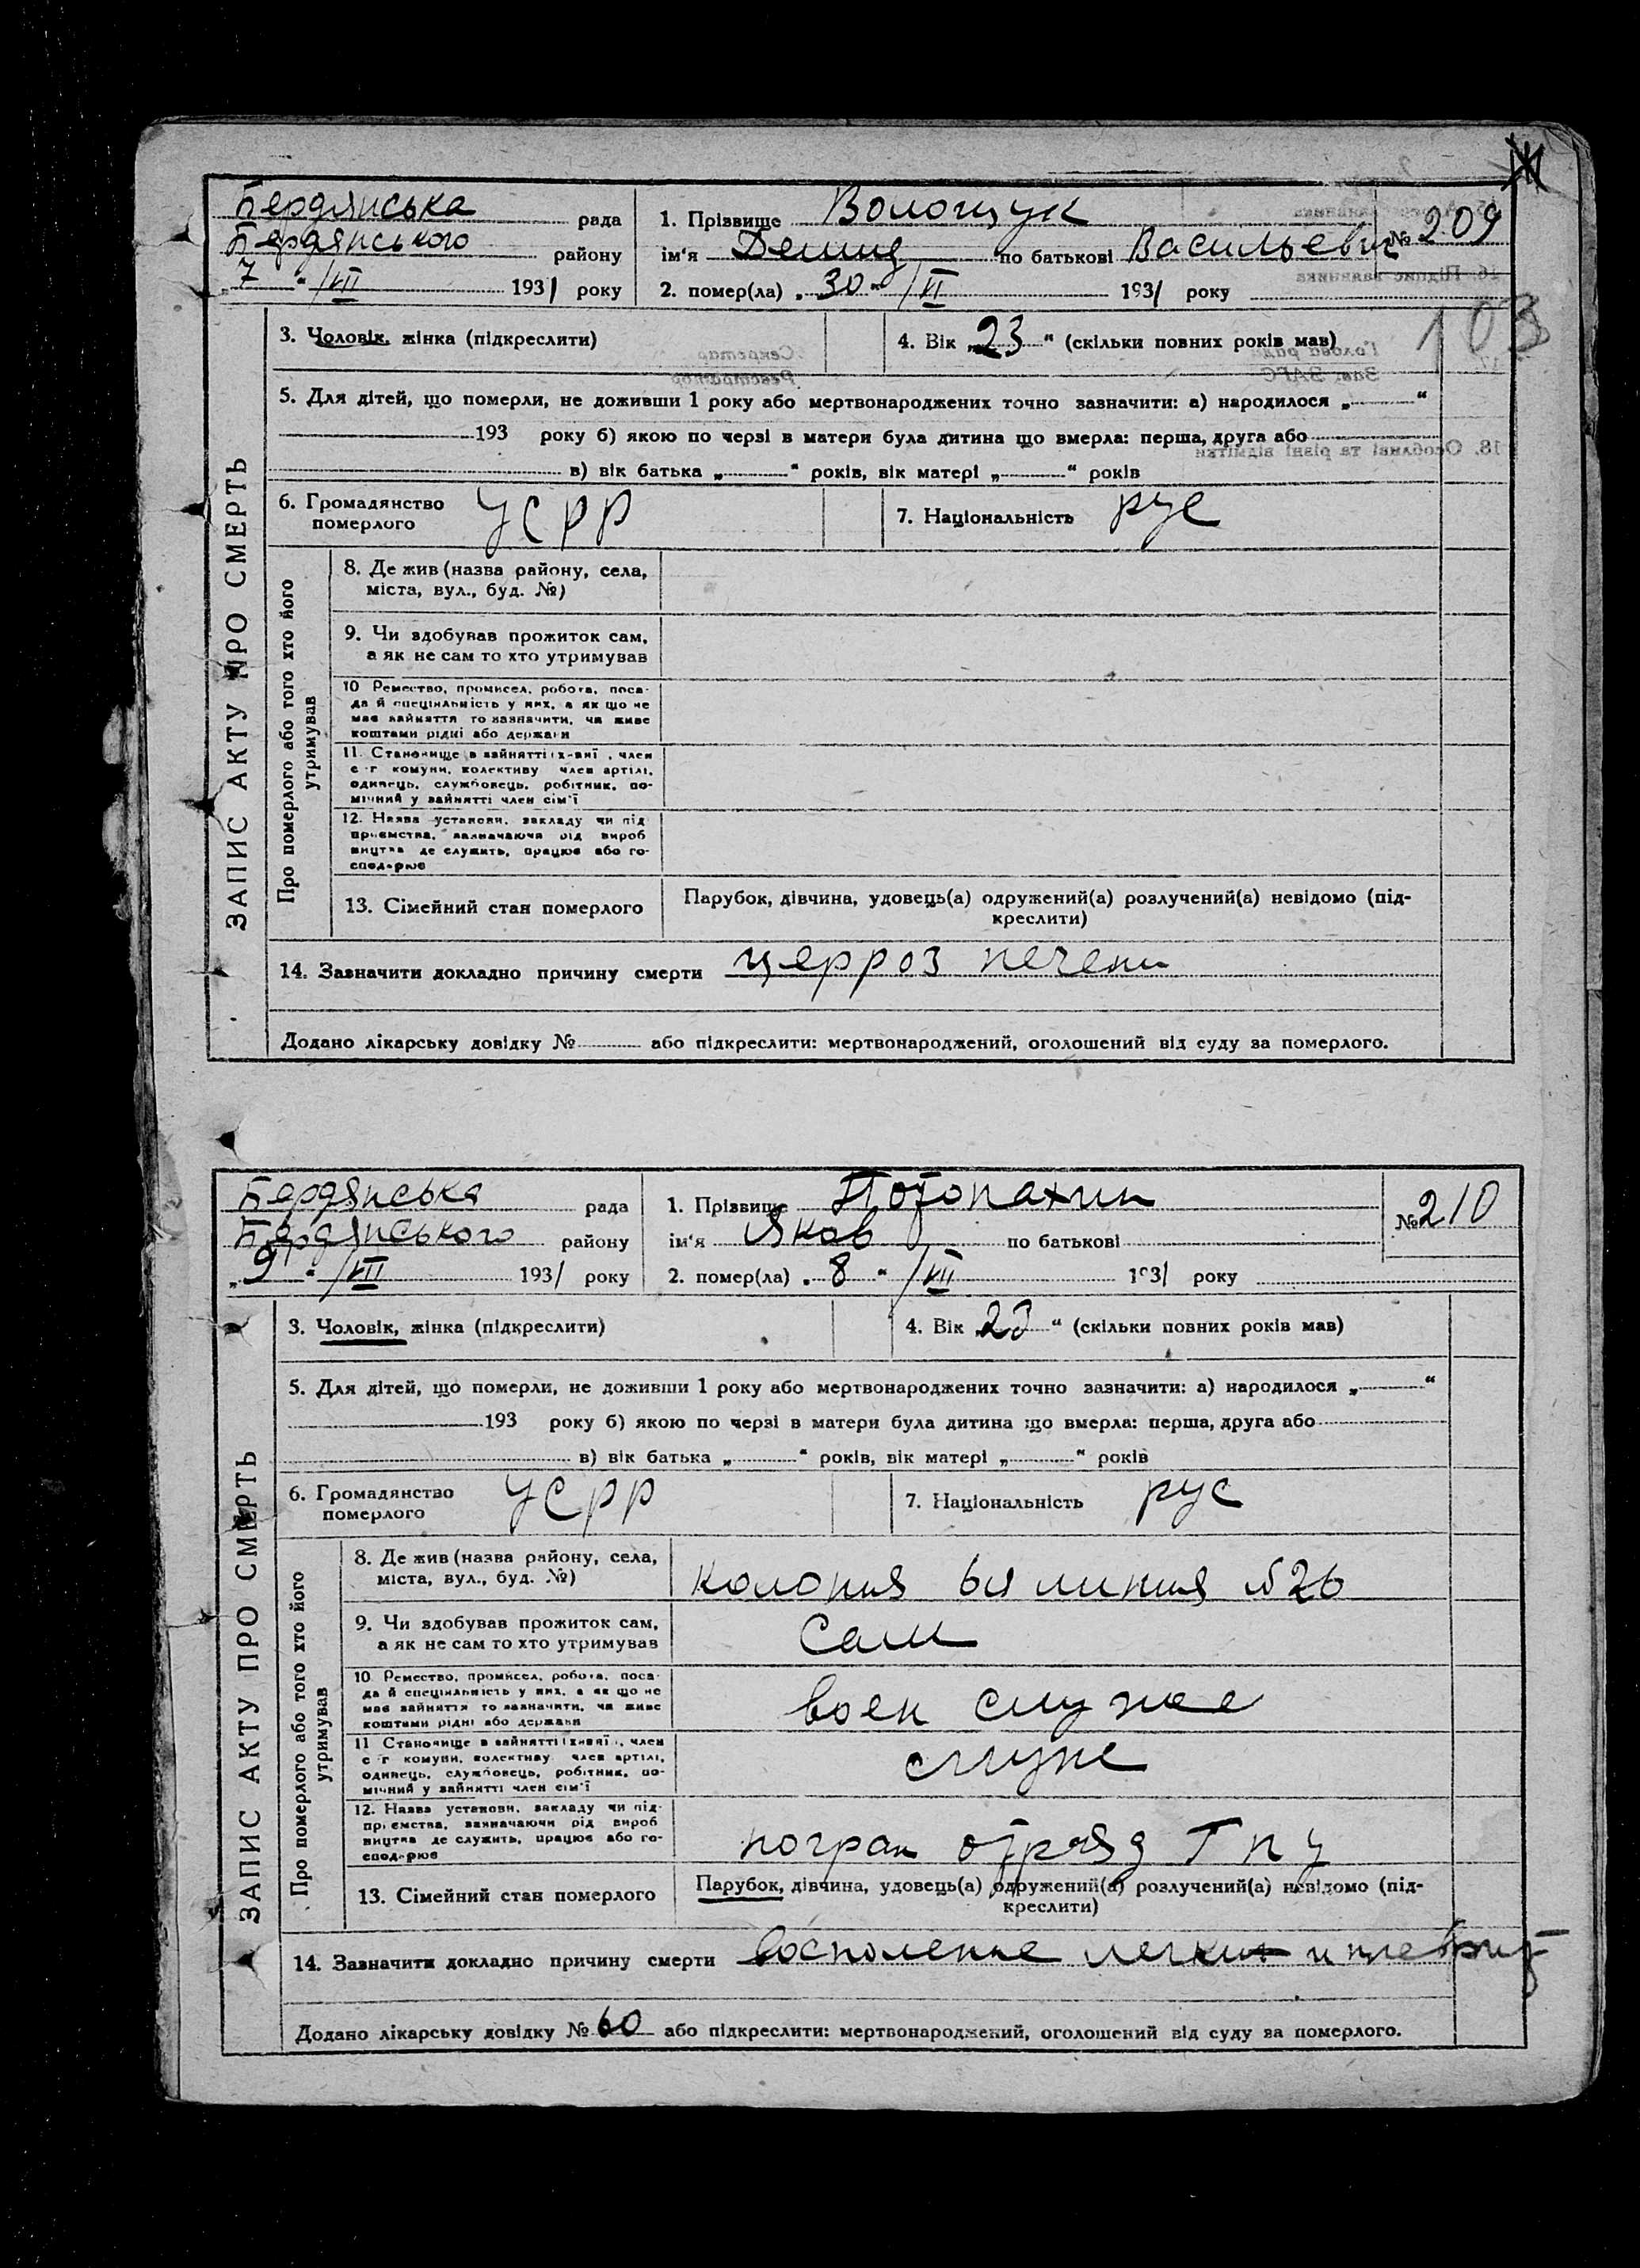 Ж
Бердянська рада
Бердянського району
„7“ /VII 1931 року
1. Прізвище Волощук
ім'я Дениц по батькові Васильевич № 209
2. помер(ла) „30“ /VI 1931 року
103
3. Чоловік, жінка (підкреслити)
4. Вік „23“ (скільки повних років мав)
5. Для дітей, що померли, не доживши 1 року або мертвонароджених точно зазначити: а) народилося „ “
193 року б) якою по черзі в матери була дитина що вмерла: перша, друга або
в) вік батька „ “ років, вік матері „ “ років
6. Громадянство померлого УСРР
7. Національність рус
ЗАПИС АКТУ ПРО СМЕРТЬ
Про померлого або того хто його утримував
8. Де жив (назва району, села,
міста, вул., буд. №)
9. Чи здобував прожиток сам,
а як не сам то хто утримував
10 Ремество, промисел, робота, поса-
да й спеціяльність у них, а як що не
має зайняття то зазначити, чи живе
коштами рідні або держави
11. Становище в зайнятті член
с-г комуни, колективу член артілі,
одинець, службовець, робітник, по-
мічний у зайнятті член сім'ї
12. Назва установи, закладу чи під
приємства, зазначаючи рід вироб
ництва де служить, працює або го-
сподарює
13. Сімейний стан померлого
Парубок, дівчина, удовець(а) одружений(а) розлучений(а) невідомо (під-
креслити)
14. Зазначити докладно причину смерти церроз печени
Додано лікарську довідку № або підкреслити: мертвонароджений, оголошений від суду за померлого.
Бердянська рада
Бердянського району
„9“ /VII 1931 року
1. Прізвище Потопахин
№ 210
ім'я Яков по батькові
2. помер(ла) „8“ /VII 1931 року
3. Чоловік, жінка (підкреслити)
4. Вік „23“ (скільки повних років мав)
5. Для дітей, що померли, не доживши 1 року або мертвонароджених точно зазначити: а) народилося „ “
193 року б) якою по черзі в матери була дитина що вмерла: перша, друга або
в) вік батька „ “ років, вік матері „ “ років
6. Громадянство померлого УСРР
7. Національність рус
ЗАПИС АКТУ ПРО СМЕРТЬ
Про померлого або того хто його утримував
8. Де жив (назва району, села,
міста, вул., буд. №)
колония 6я линия №26
9. Чи здобував прожиток сам,
а як не сам то хто утримував
Сам
10 Ремество, промисел, робота, поса-
да й спеціяльність у них, а як що не
має зайняття то зазначити, чи живе
коштами рідні або держави
воен служае
11 Становище в зайнятті член
с-г комуни, колективу член артілі,
одинець, службовець, робітник, по-
мічний у зайнятті член сім'ї
служ
12. Назва установи, закладу чи під-
приємства, зазначаючи рід вироб
ництва де служить, працює або го-
сподарює
погран отряд Гпу
13. Сімейний стан померлого
Парубок, дівчина, удовець(а) одружений(а) розлучений(а) невідомо (під-
креслити)
14. Зазначити докладно причину смерти воспаление легких и плеврит
Додано лікарську довідку № 60 або підкреслити: мертвонароджений, оголошений від суду за померлого.